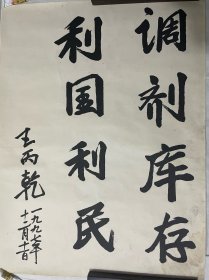 调剂库存
利国利民
王丙乾
一九九七年
十二月十日